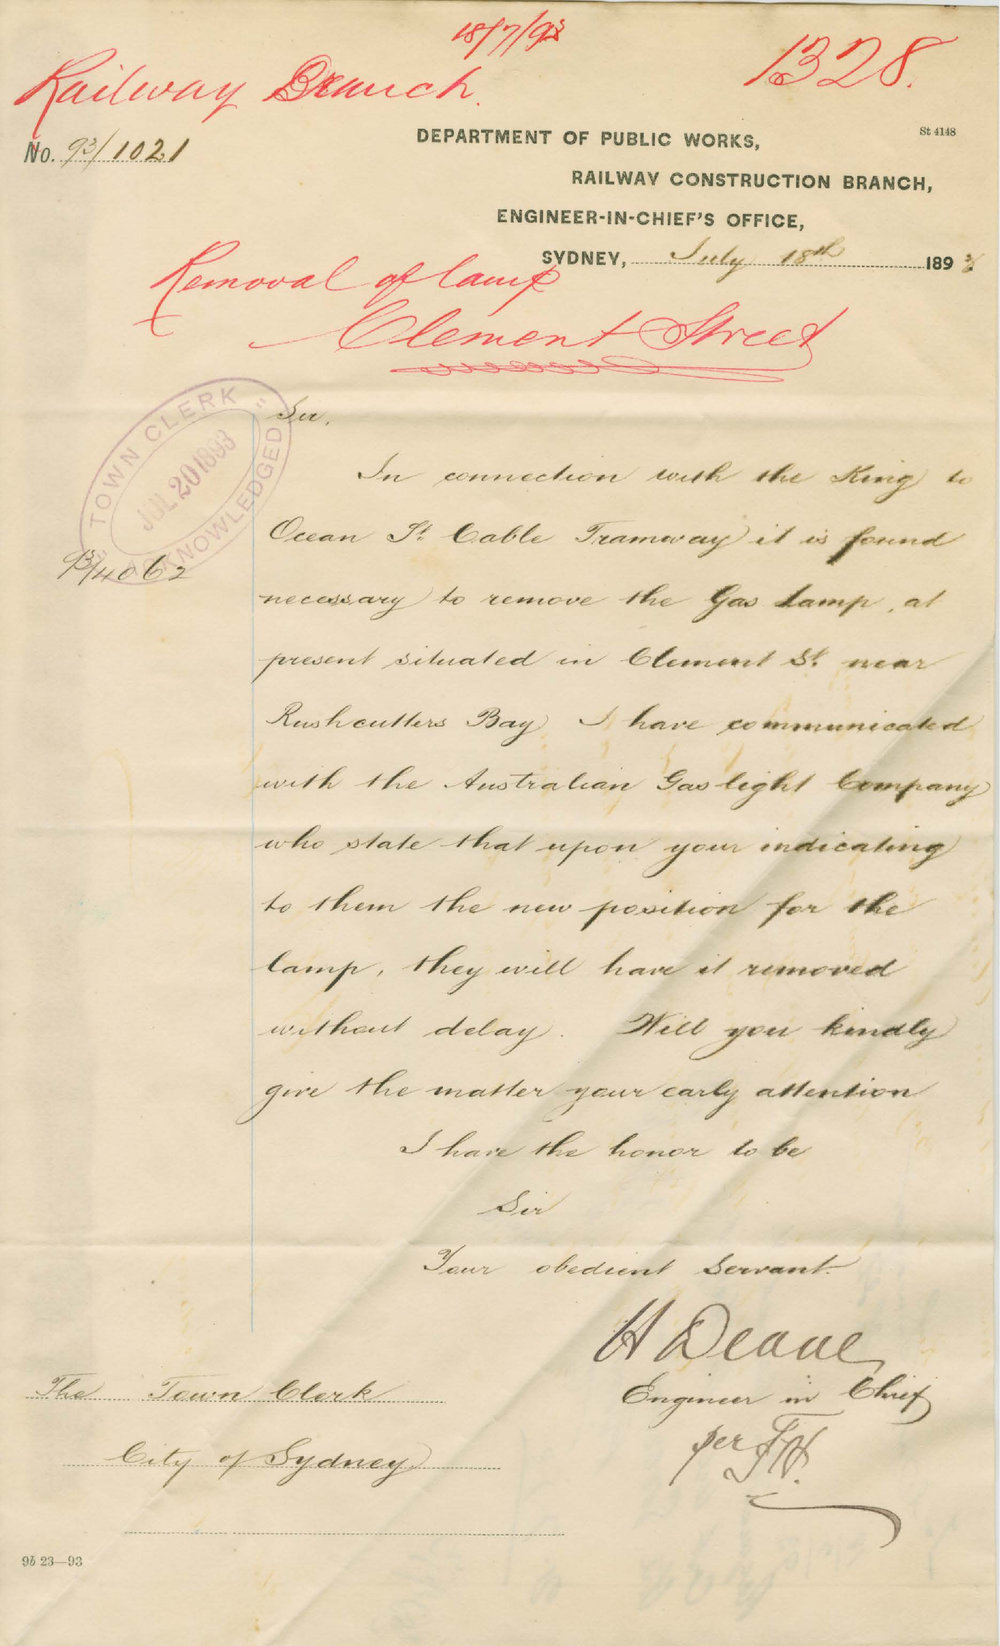 18/7/93
Railway Branch.
1328.
No. 93/1021
St 4148
DEPARTMENT OF PUBLIC WORKS,
RAILWAY CONSTRUCTION BRANCH,
ENGINEER-IN-CHIEF'S OFFICE,
SYDNEY, July 18th 1893
Removal of lamp
Clement Street
TOWN CLERK
JUL 20 1893
KNOWLEDGED
Sir,
In connection with the King to
Ocean St. Cable Tramway it is found
necessary to remove the Gas Lamp, at
93/4062
present situated in Clement St. near
Rushcutters Bay I have communicated
with the Australian Gaslight Company
who state that upon your indicating
to them the new position for the
lamp, they will have it removed
without delay. Will you kindly
give the matter your early attention
I have the honor to be
Sir
Your obedient Servant.
H Deane
Engineer in Chief
per
The Town Clerk
City of Sydney
9b 23—93